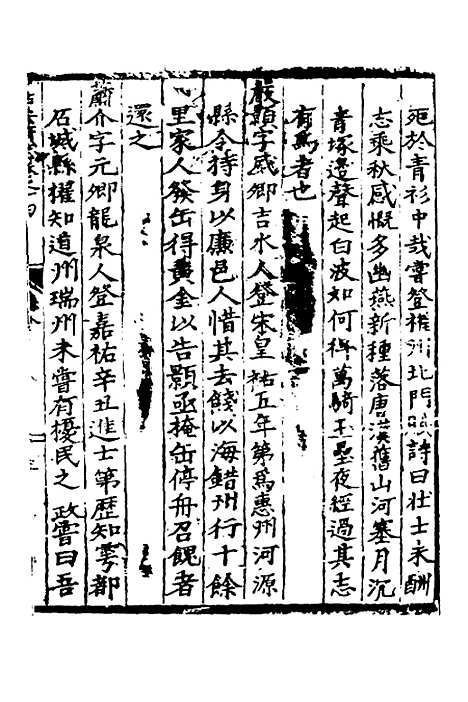 死於青衫中哉嘗登州北門賦詩曰壯士未酬
志乘秋感慨多幽燕新種落唐漢舊山河塞月沉
青塚邊聲起白波如何得萬騎玉壘夜經過其志
有為者也
嚴顥字感卿吉水人登宋皇祐五年第為惠州河源
縣令持身以廉邑人惜其去餞以海錯州行十餘
里家人發缶得黃金以告顥亟掩缶停舟召餽者
還之
蕭介字元卿龍泉人登嘉祐辛丑進士第歷知雩都
石城縣權知道州瑞州未嘗有擾民之政嘗曰吾